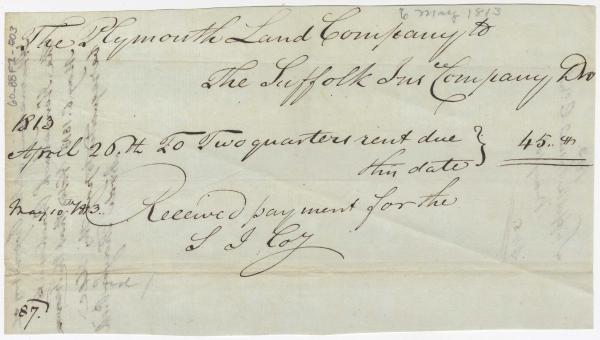 6 May 1813
The Plymouth Land Company to
The Suffolk Ins Company Dr
1813
April 26th To Two quarters rent due
this date } 45..
May 10th 1813. Received payment for the
S I Coy
87.